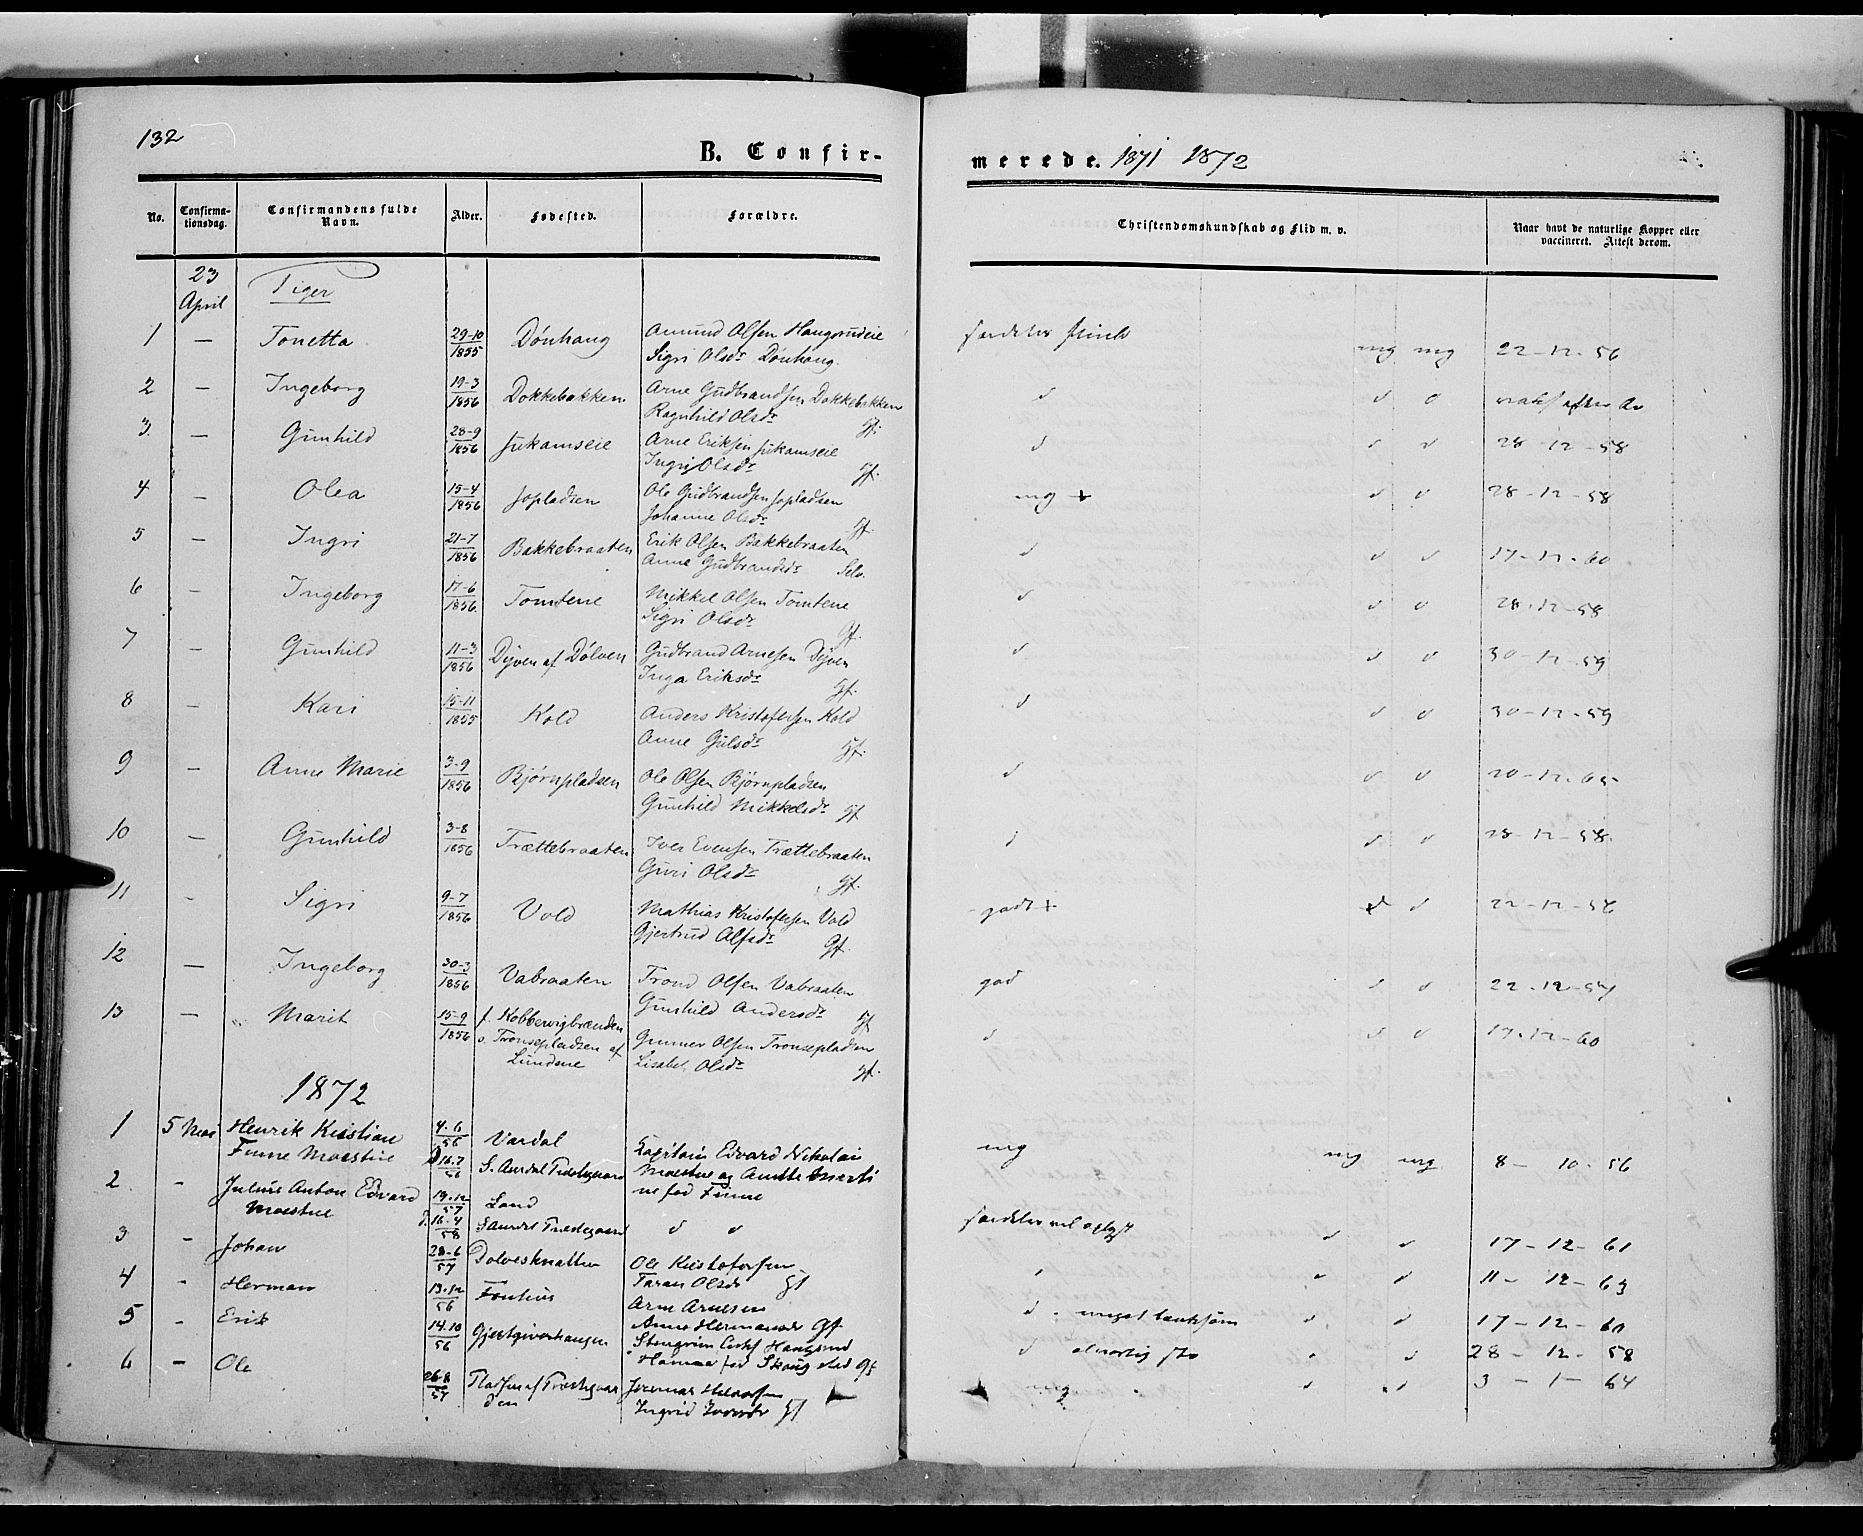 132
B. Confir-
merede. 1871 1872
No. Confirma-tionsdag. Confirmandens fulde Navn. Alder. Fødested. Forældre. Christendomskundskab og Flid m. v. Naar havt de naturlige Kopper eller vaccineret. Attest derom.
23 April Piger
1 — Tonetta 29-10 1855 Dönhaug Amund Olsen Haugsrudeie
Sigri Olsdr Dönhaug. særdeles flink mg mg 22-12-56
2 — Ingeborg 19-3 1856 Dokkebakken Arne Gudbrandsen Dokkebakken
Ragnhild Olsdr Gf. d d d
3. — Gunhild 28-9 1856 Jukamseie Arne Eriksen Jukamseie
Ingri Olsdr Gf. d d d 28-12-58
4 — Olea 15-4 1856 Jopladsen Ole Gudbrandsen Jopladsen
Johanne Olsdr Gf. mg + d d 28-12-58
5 — Ingri 21-7 1856 Bakkebraaten Erik Olsen Bakkebraaten
Anne Gudbrandsdr Selv. d d d 17-12-60
6 — Ingeborg 17-6 1856 Tomtene Mikkel Olsen Tomtene
Sigri Olsdr Gf. d d d 28-12-58
7 — Gunhild 11-3 1856 Dyven af Dölven Gudbrand Arnesen Dyven
Inga Eriksdr Gf. d d d 30-12-59
8 — Kari 15-11 1855 Kold Anders Kristofersen Kold
Anne Gulsdr Gf. d d d 30-12-59
9 — Anne Marie 3-9 1856 Bjørnpladsen Ole Olsen Bjørnpladsen
Gunhild Mikkelsdr Gf d d d 20-12-65
10 — Gunhild 3-8 1856 Trættebraaten Iver Evensen Trættebraaten
Guri Olsdr Gf. d d d 28-12-58
11 - Sigri 9-7 1856 Vold Mathias Kristofersen Vold
Gjertrud Alfsdr Gf. godt + d d 22-12-56
12 — Ingeborg 30-3 1856 Vabraaten Trond Olsen Vabraaten
Gunhild Andersdr Gf god d d 22-12-57
13 — Marit 15-9 1856 f. Kobbervigbrænden
o. Tronsepladsen af
Lundene Gunner Olsen Tronsepladsen
Lisabet Olsdr Gf. d d d 17-12-60
1872
1 5 Mai Henrik Kristian
Finne Moestue 4.6 56 16.7 56 Vardal
S. Aurdal Præstegaard Kapitain Edvard Nikolai
Moestue og
født Finne mg mg mg 8-10-56
2 - Julius Anton Edvard
Moestue 19.12 57 16-4 58 Land
S Aurdal Præstegaard d d særdeles vel oplyst d d 17-12-61
3 - Johan 28-6 57 Dolvesknatten Ole Kristofersen
Taran Olsdr Gf d d 11-12-63
4 - Herman 13.12 56 Arne Arnesen
Anne Hermansdr Gf d d d 17-12-60
5 - Erik 14.10 56 Gjestgiverhaugen Haugsrud
født Gf d d 28-12-58
6 — Ole 26-8 57 af Præstegaar
den
Ingrid Iversdr Gf mg d d 3-1-64